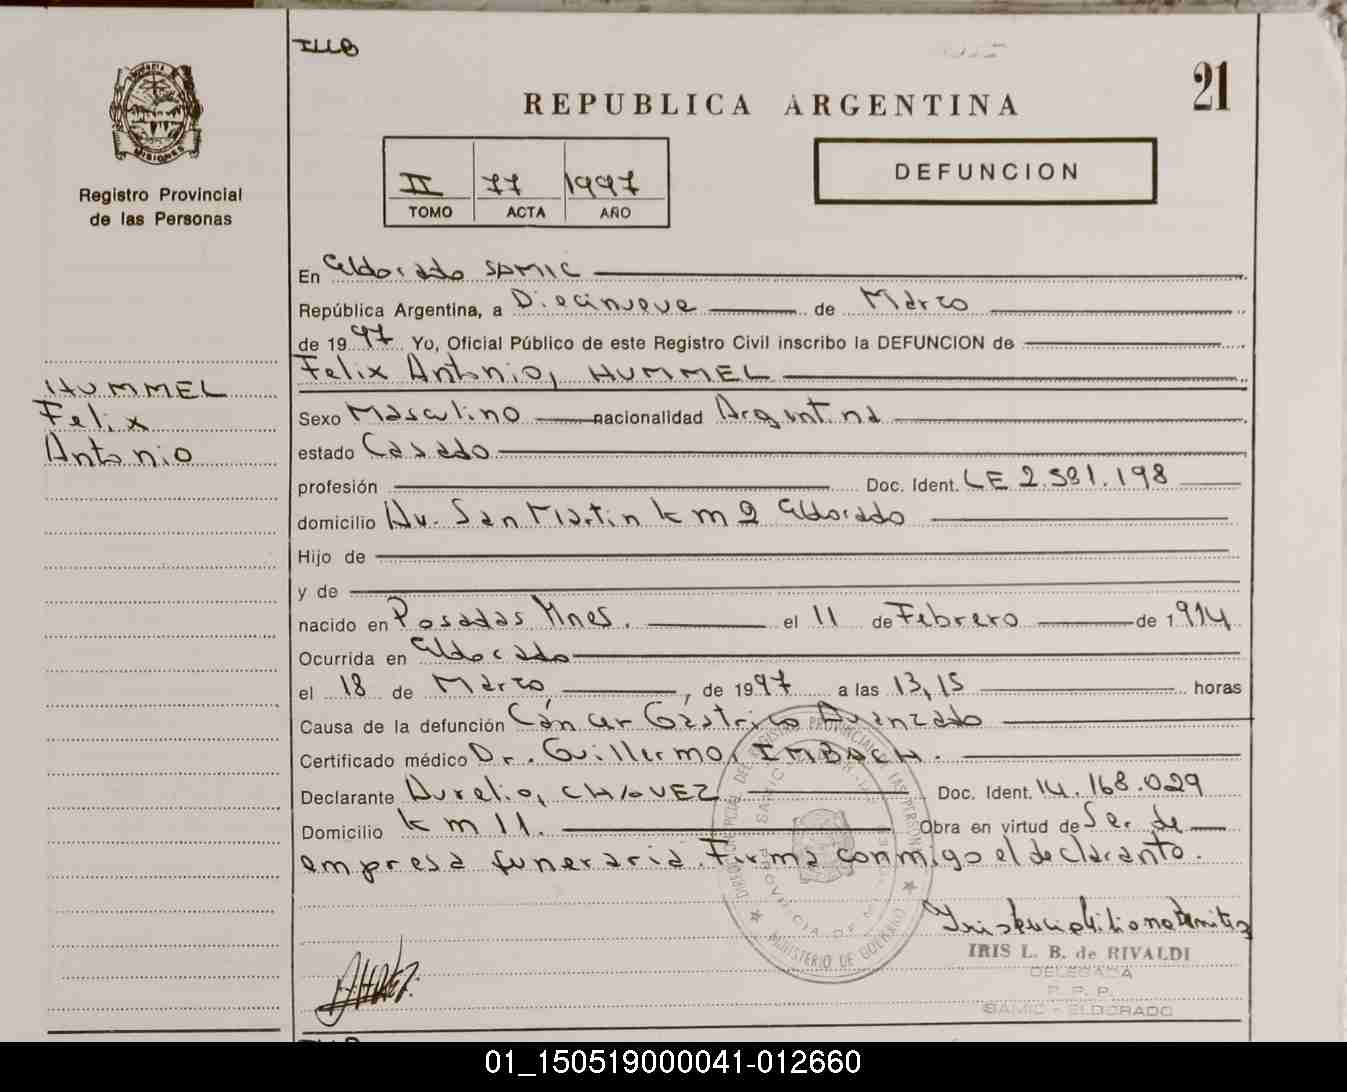 ILLB
21
REPUBLICA ARGENTINA
MISIONES
Registro Provincial
de las Personas
II 77 1997
TOMO ACTA AÑO
DEFUNCION
En Eldorado SAMIC
República Argentina, a Diecinueve de Marzo
de 1997 Yo, Oficial Público de este Registro Civil inscribo la DEFUNCION de
Felix Antonio, HUMMEL
HUMMEL
Felix
Antonio
Sexo Masculino nacionalidad Argentina
estado Casado
profesión Doc. Ident. LE 2.581.198
domicilio Av. San Martin km 9 Eldorado
Hijo de
y de
nacido en Posadas Mnes. el 11 de Febrero de 1914
Ocurrida en Eldorado
el 18 de Marzo, de 1997 a las 13,15 horas
Causa de la defunción Cáncer Gástrico Avanzado
Certificado médico Dr. Guillermo, IMBACH.
Declarante Aurelio, CHAVEZ Doc. Ident. 14.168.029
Domicilio km 11. Obra en virtud de Ser de
empresa funeraria. Firma conmigo el declarante.
MINISTERIO DE GOBIERNO
PROVINCIA DE
IRIS L. B. de RIVALDI
DELEGADA
R. P. P.
SAMIC - ELDORADO
01_150519000041-012660